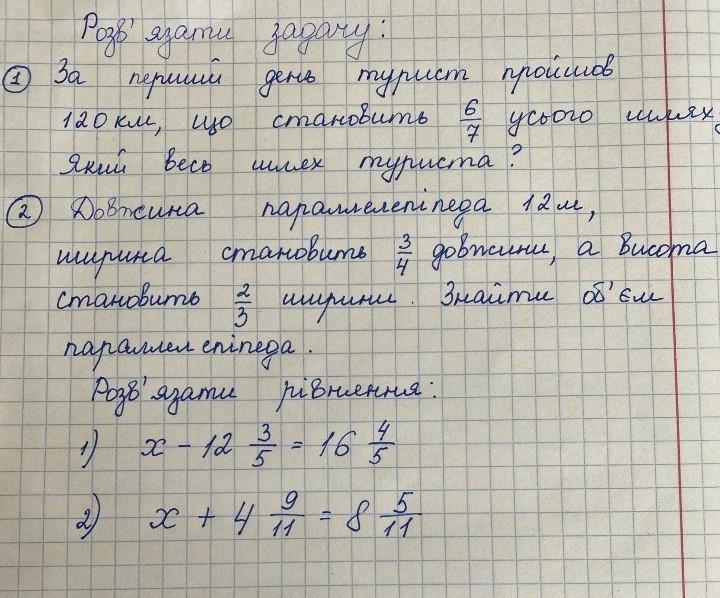 Розв'язати задачу:
① За перший день турист пройшов
120 км, що становить 6/7 усього шляху.
Який весь шлях туриста?
② Довжина параллелепіпеда 12 м,
ширина становить 3/4 довжини, а висота
становить 2/3 ширини. Знайти об'єм
параллелепіпеда.
Розв'язати рівняння:
1) x - 12 3/5 = 16 4/5
2) x + 4 9/11 = 8 5/11